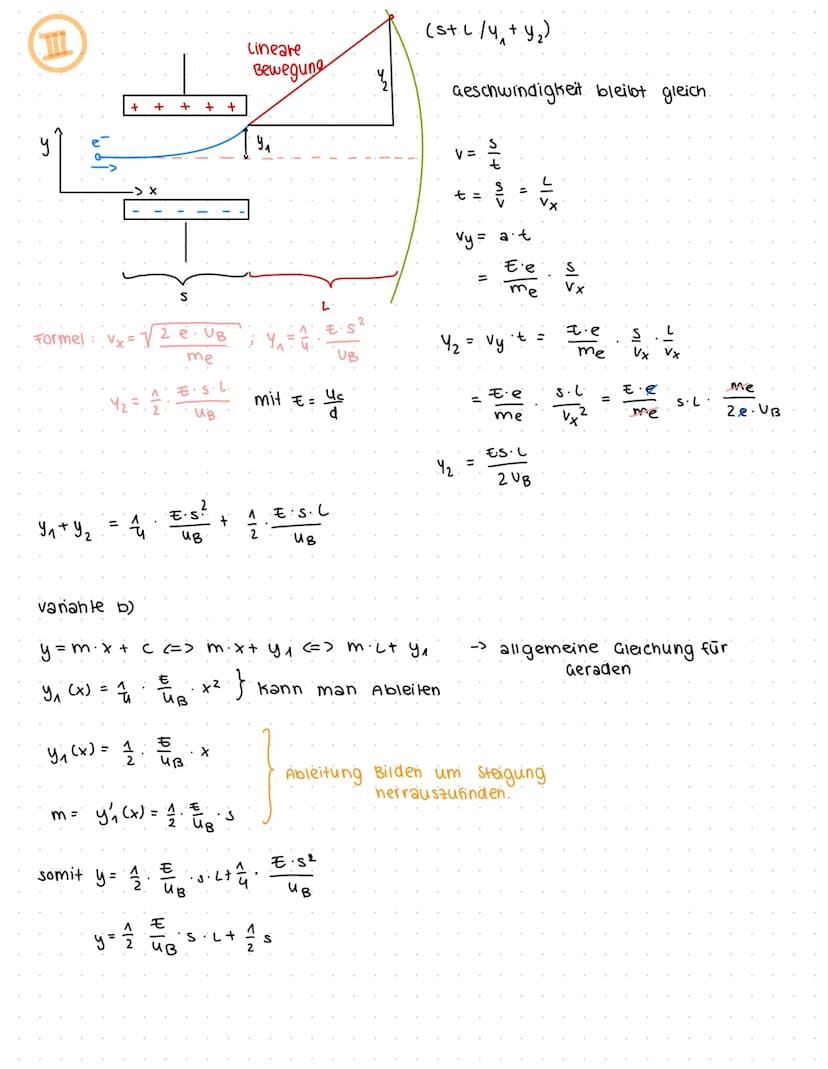 III
(s+L/y₁+y₂)
Lineare
Bewegung
y₂
Geschwindigkeit bleibt gleich.
+ + + + +
y
e⁻
y₁
x
- - - - - -
s
L
v = s/t
t = s/v = L/vₓ
vy = a·t
= E·e/me · s/vₓ
Formel: vₓ = √(2 e·UB/me) ; y₁ = 1/4 · E·s²/UB
y₂ = 1/2 · E·s·L/UB mit E = Uc/d
y₂ = vy·t = E·e/me · s/vₓ · L/vₓ
= E·e/me · s·L/vₓ² = E·e/me s·L · me/2e·UB
y₂ = Es·L/2UB
y₁+y₂ = 1/4 · E·s²/UB + 1/2 · E·s·L/UB
Variante b)
y = m·x + c <=> m·x + y₁ <=> m·L + y₁ -> allgemeine Gleichung für
Geraden
y₁(x) = 1/4 · E/UB · x² } kann man Ableiten
y₁(x) = 1/2 · E/UB · x
Ableitung Bilden um Steigung
herrauszufinden.
m = y₁'(x) = 1/2 · E/UB · s
somit y = 1/2 · E/UB · s·L + 1/4 · E·s²/UB
y = 1/2 E/UB · s·L + 1/2 s